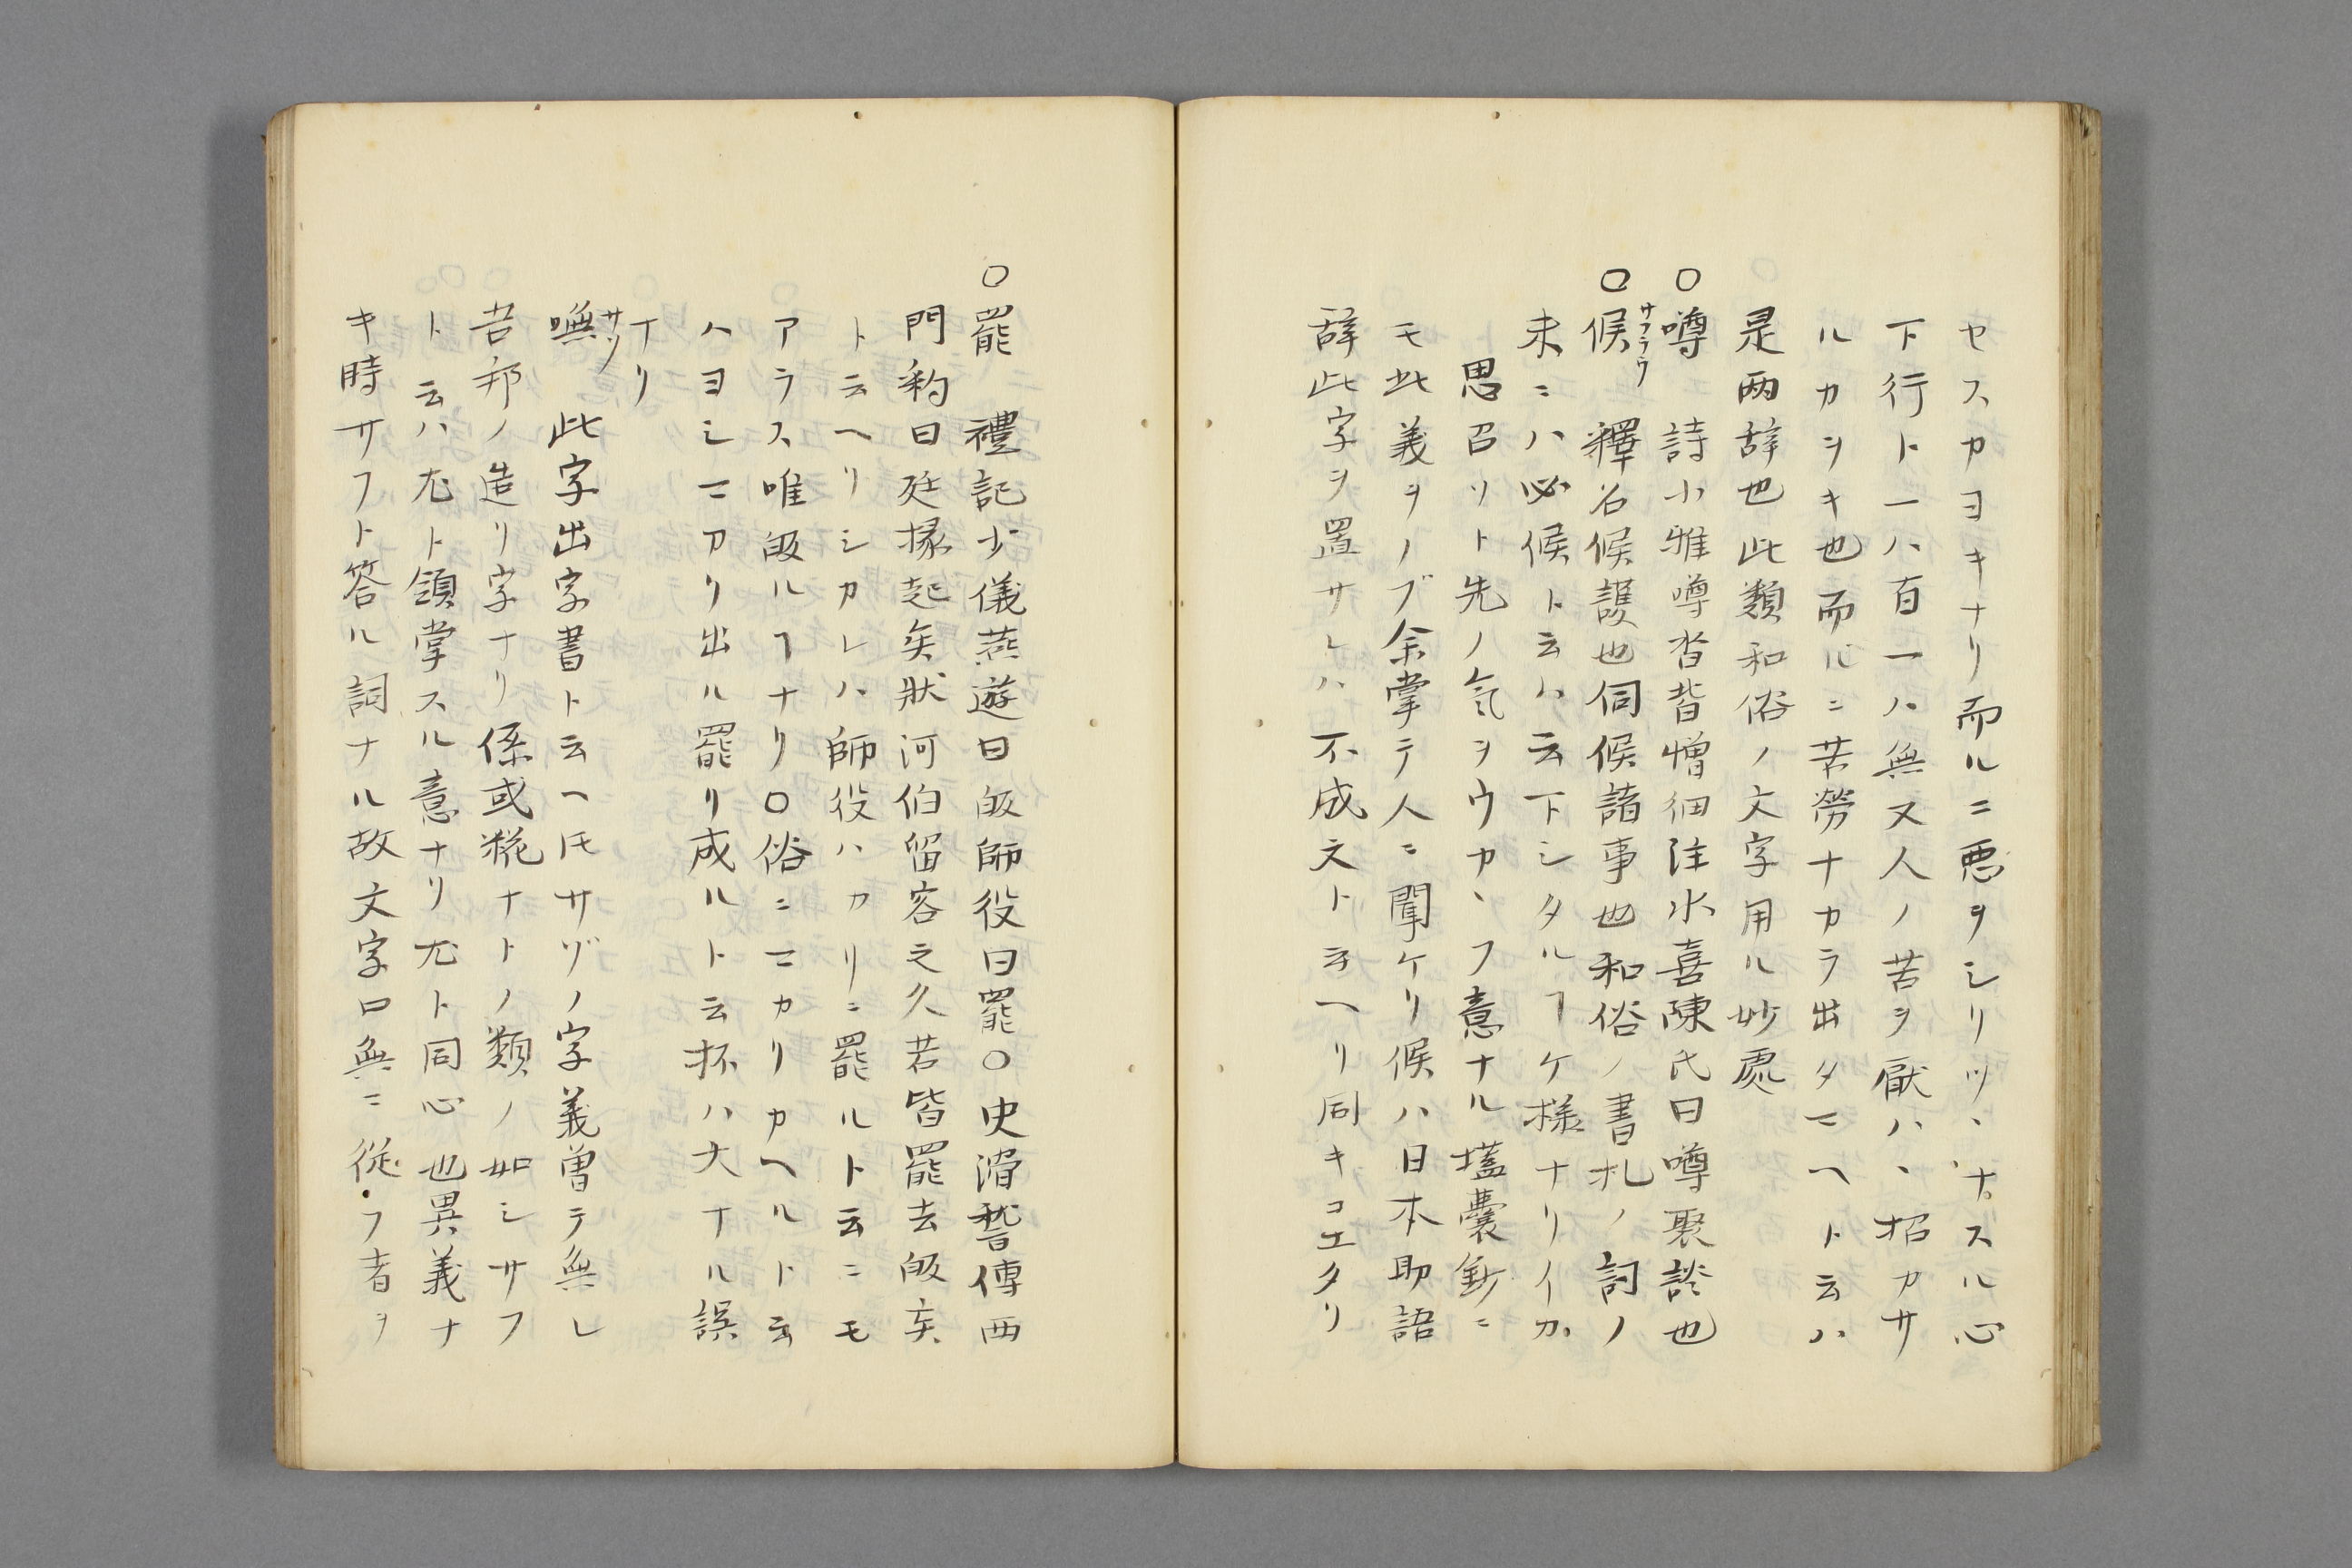 セスカヨキナリ而ルニ悪ヲシリツヽナスル心
下行ト一ハ百一ハ無又人ノ苦ヲ厭ハヽ招カサ
ルカヲキ也而ルニ苦労ナカラ出タマヘト云ハ
是両辞也此類和俗ノ文字用ル妙處
○噂 詩小雅噂沓背憎細注水喜陳氏曰噂聚談也
○候 サフラウ 釋名候護也伺候諸事也和俗ノ書札ノ詞ノ
末ニハ必候ト云ハ云下シタルヿケ様ナリイカ
思召ソト先ノ気ヲウカヽフ意ナル壒囊鈔ニ
モ此義ヲノブ余掌テ人ニ聞ケリ候ハ日本助語
辞此字ヲ置サレハ不成文ト云ヘリ同キコエタリ
○罷 禮記少儀燕遊曰皈師役曰罷○史滑稽傳西
門豹曰廷掾起矣狀河伯留客之久若皆罷去皈矣
ト云ヘリシカレハ師役ハカリニ罷ルト云ニモ
アラス唯皈ルヿナリ○俗ニマカリカヘルト云
ハヨシマカリ出ル罷リ成ルト云抔ハ大ナル誤
ナリ
嘸 サソ 此字出字書ト云ヘ𪜈サゾノ字義曽テ無シ
吾邦ノ造リ字ナリ係或糀ナトノ類ノ如シサフ
ト云ハ尤ト領掌スル意ナリ尤ト同心也異義ナ
キ時サフト答ル詞ナル故文字口無ニ従フ者ヲ